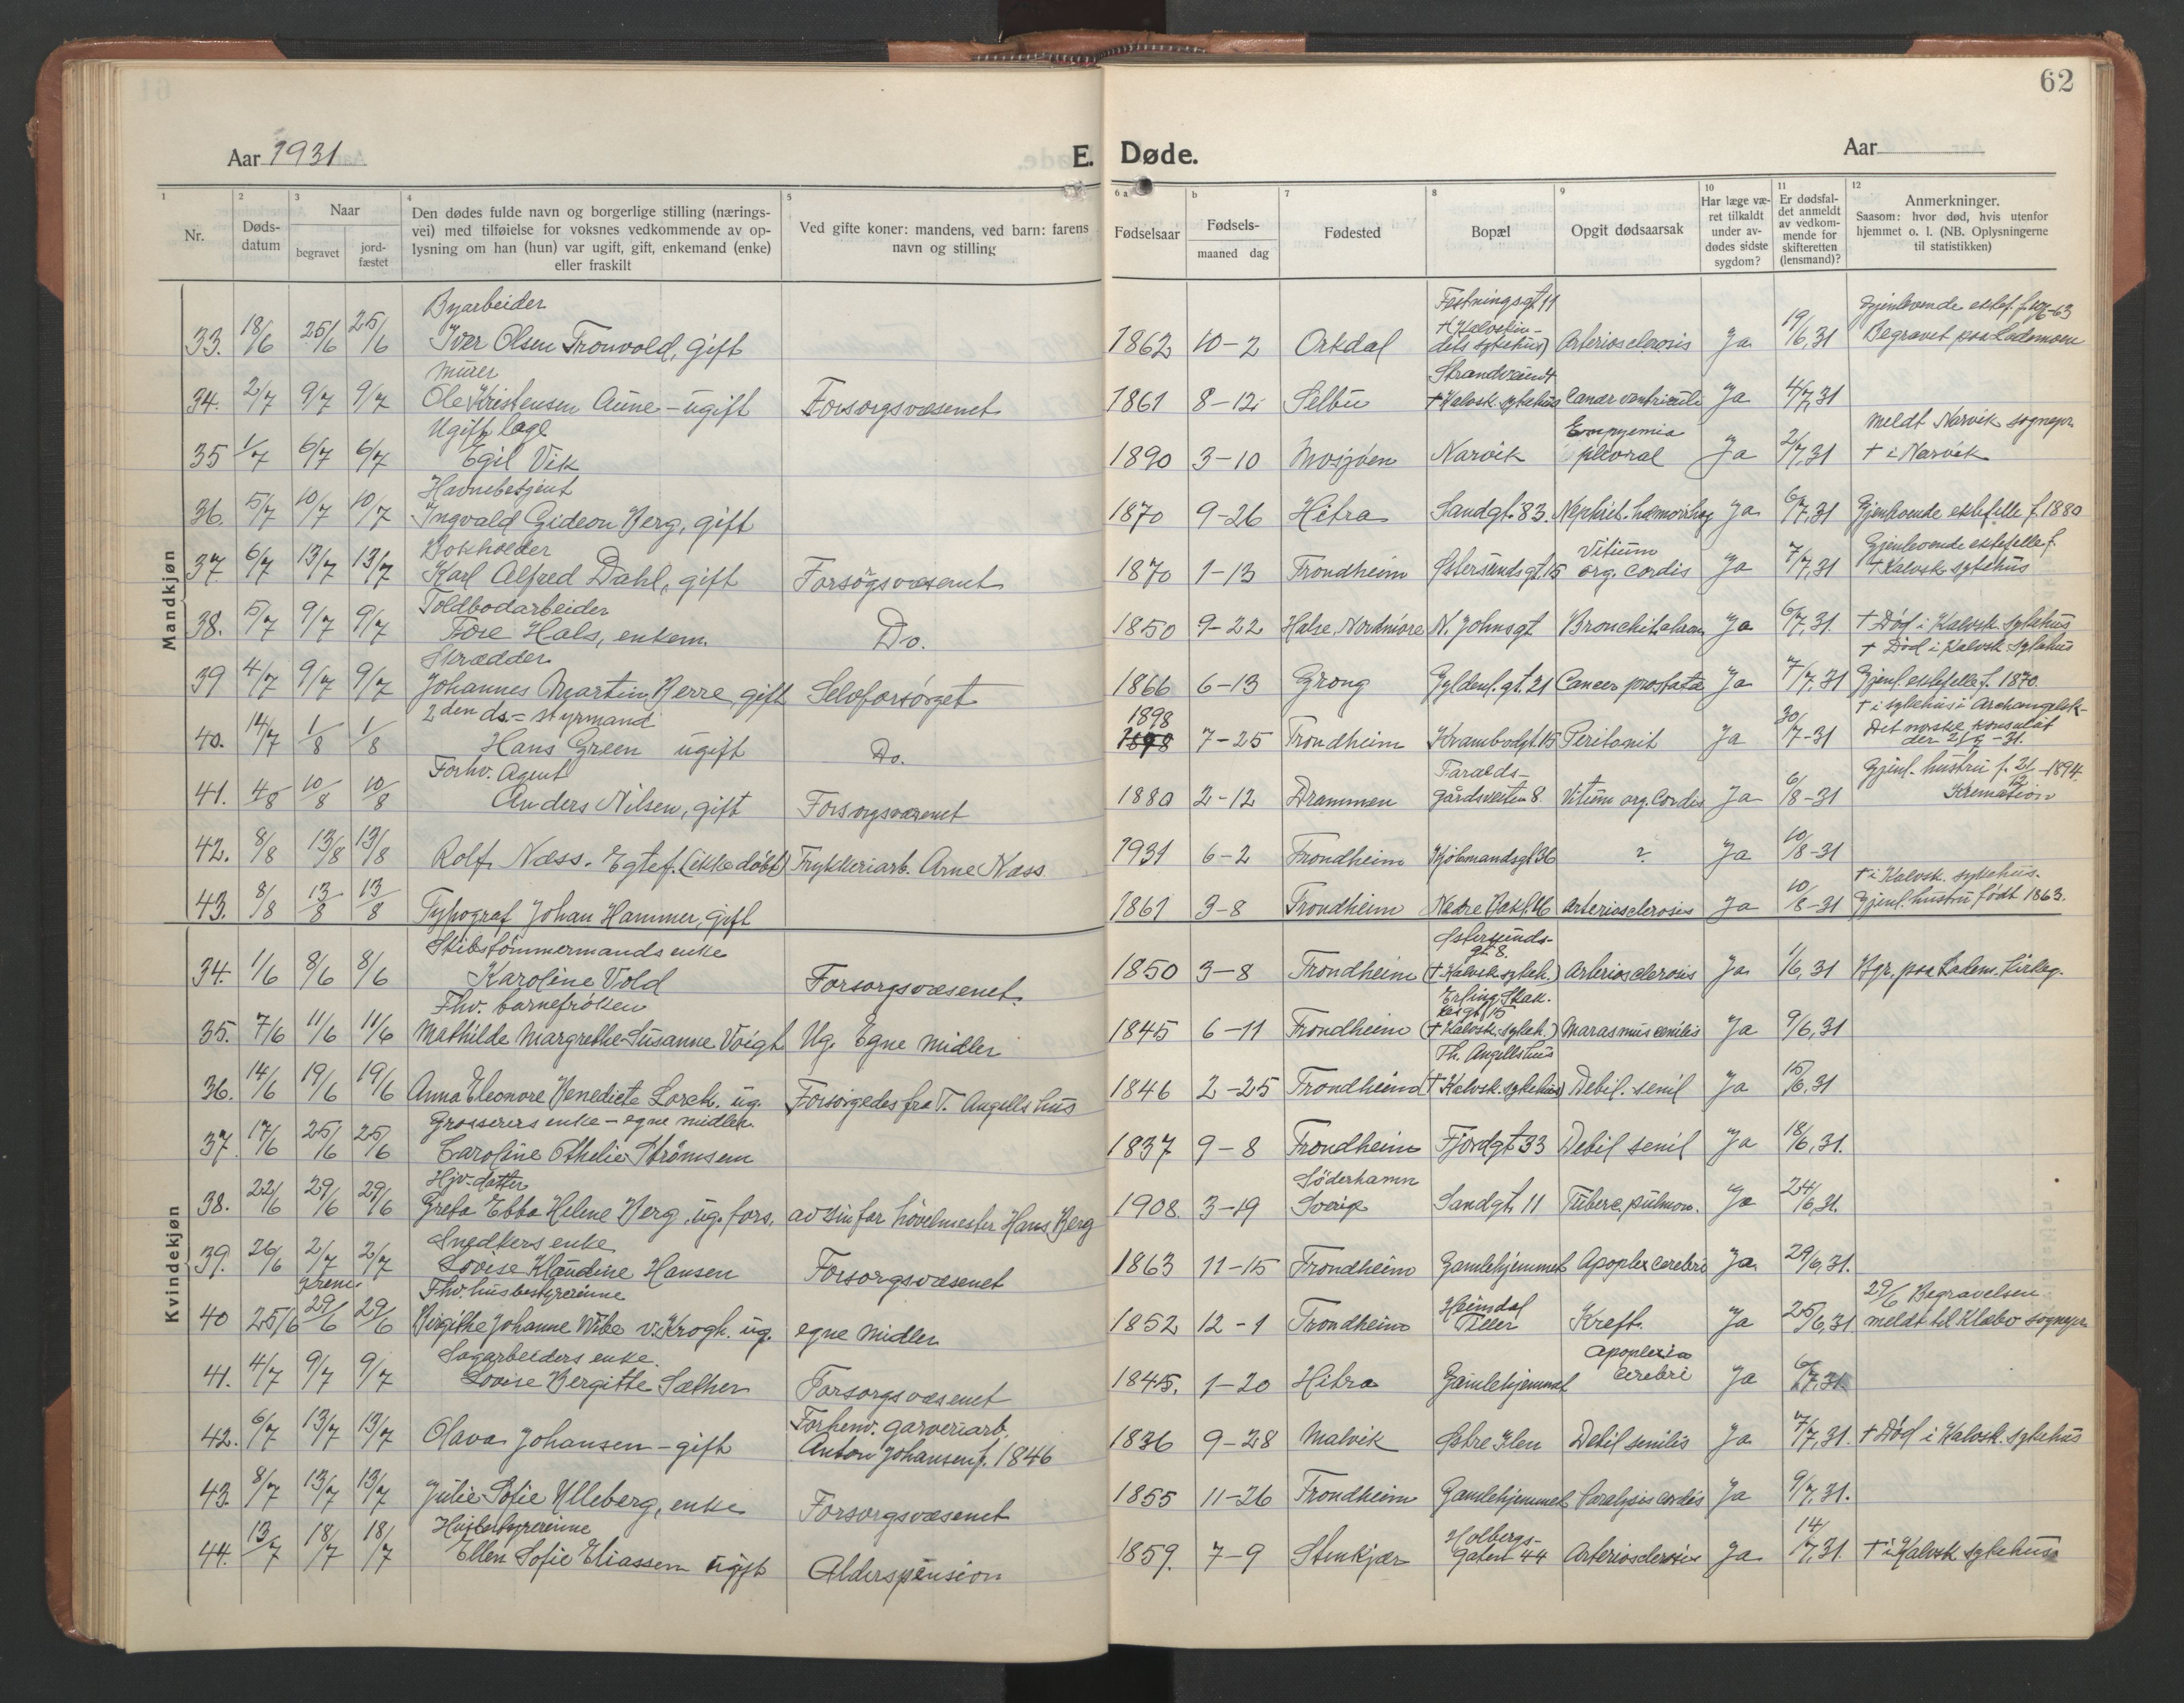 62
Aar 1931 E. Døde. Aar
1 2 3 4 5 6 a b 7 8 9 10 11 12
Nr. Døds-datum Naar begravet jord-fæstet Den dødes fulde navn og borgerlige stilling (nærings-vei) med tilføielse for voksnes vedkommende av op-lysning om han (hun) var ugift, gift, enkemand (enke) eller fraskilt Ved gifte koner: mandens, ved barn: farens navn og stilling Fødselsaar Fødsels-maaned dag Fødested Bopæl Opgit dødsaarsak Har læge væ-ret tilkaldt under av-dødes sidste sygdom? Er dødsfal-det anmeldt av vedkom-mende for skifteretten (lensmand)? Anmerkninger. Saasom: hvor død, hvis utenfor hjemmet o. l. (NB. Oplysningerne til statistikken)
Mandkjøn
33. 18/6 25/6 25/6 Byarbeider Iver Olsen Tronvold, gift 1862 10-2 Orkdal Festningsgt. 11 († Kalvskin-dets sykehus) Arteriosclerosis Ja 19/6,31 Gjenlevende ektef. f. Begravet paa Lademoen
34. 2/7 9/7 9/7 Murer Ole Kristensen Aune - ugift Forsorgsvæsenet 1861 8-12 Selbu Strandveien † Kalvsk. sykehus Cancer ventriculi Ja 4/7,31
35 1/7 6/7 6/7 Ugift læge Egil Vik 1890 3-10 Mosjøen Narvik Empyemia pleural Ja 2/7,31 meldt Narvik sognepr. † i Narvik
36. 5/7 10/7 10/7 Havnebetjent Ingvald Gideon Berg, gift 1870 9-26 Hitra Sandgt. 83. Nephrit. hæmorrhag Ja 6/7,31 Gjenlevende ektefelle f. 1880
37 6/7 13/7 13/7 Bokholder Karl Alfred Dahl, gift Forsorgsvæsenet 1870 1-13 Trondheim Østersundsgt. 15 Vitium org. cordis Ja 7/7,31 Gjenlevende ektefelle f. † Kalvsk. sykehus
38. 5/7 9/7 9/7 Toldbodarbeider Tore Hals, enkem. Do. 1850 9-22 Halse, Nordmøre N. Johnsgt. Bronchit. Ja 6/7,31. † Død i Kalvsk. sykehus
39 4/7 9/7 9/7 Skrædder Johannes Martin Berre, gift Selvforsørget 1866 6-13 Grong Gyldenl.gt. 21 Cancer prostata Ja 7/7,31 † Død i Kalvsk. sykehus Gjenl. ektefelle f. 1870.
40. 14/7 1/8 1/8 2den ds.= styrmand Hans Green ugift Do. 1898 7-25 Trondheim Krambodgt. 15 Peritonit Ja 30/7-31 † i sykehus i Archangelsk - Det norske konsulat der
41. 4/8 10/8 10/8 Forhv. Agent Anders Nilsen, gift Forsorgsvæsenet 1880 2-12 Drammen Taralds-gårdsveiten 8. Vitium org. Cordis Ja 6/8-31 Gjenl. hustru f. 21/12-1894. Kremation
42. 8/8 13/8 13/8 Rolf Næss. Egtef. (ikke døbt) Trykkeriarb. Arne Næss 1931 6-2 Trondheim Kjøbmandsgt. 36 ? Ja 10/8-31
43. 8/8 13/8 13/8 Typograf Johan Hammer, gift 1861 3-8 Trondheim Nedre Bakl. 16 Arteriosclerosis Ja 10/8-31 † i Kalvsk. sykehus. Gjenl. hustru født 1863.
Kvindekjøn
34. 1/6 8/6 8/6 Skibstømmermands enke Karoline Vold Forsorgsvæsenet. 1850 3-8 Trondheim Østersunds-gt. 8. († Kalvsk. sykeh.) Arteriosclerosis Ja 1/6,31 Bgr. paa Ladem. kirkeg.
35. 7/6 11/6 11/6 Fhv. barnefrøken Mathilde Margrethe Susanne Voigt Ug. Egne midler 1845 6-11 Trondheim Erling Skak-kesgt. 15 († Kalvsk. sykeh.) Marasmus senilis Ja 9/6,31
36. 14/6 19/6 19/6 Anna Eleonore Benedicte Lorck. ug. Forsørgedes fra T. Angells hus 1846 2-25 Trondheim Th. Angells hus († Kalvsk. sykehus) Debil. senil Ja 15/6,31
37. 17/6 25/6 25/6 Grosserers enke - egne midler. Caroline Othelie Strømsem 1837 9-8 Trondheim Fjordgt. 33 Debil senil Ja 18/6,31.
38. 22/6 29/6 29/6 Hjv. datter Greta Ebba Helene Berg, ug. fors. av sin far høvelmester Hans Berg 1908. 3-19 Söderhamn Sverige Sandgt. 11 Tuberc. pulmon. Ja 24/6,31.
39. 26/6 2/7 2/7 Snedkers enke Lovise Klaudine Hansen Forsorgsvæsenet 1863 11-15 Trondheim Gamlehjemmet Apoplex cerebri Ja. 29/6,31.
40 25/6 krem. 29/6 29/6 Fhv. husbestyrerinne Birgithe Johanne Wibe v. Krogh. ug. egne midler 1852 12-1 Trondheim Heimdal Tiller Kreft. Ja 25/6,31 29/6 Begravelsen meldt til Klæbo sognepr
41. 4/7 9/7 9/7 Sagarbeiders enke. Lovise Bergitte Sæther Forsorgsvæsenet 1845. 1-20 Hitra Gamlehjemmet Apoplexia cerebri Ja 6/7,31
42. 6/7 13/7 13/7 Olava Johansen - gift Forhenv. garveriarb. Anton Johansen f. 1846 1836 9-28 Malvik Østre Ilen Debil senilis Ja 7/7,31. † Død i Kalvsk. sykehus
43. 8/7 13/7 13/7 Julie Sofie Ulleberg, enke Forsorgsvæsenet 1855 11-26 Trondheim Gamlehjemmet Paralysis cordis Ja 9/7,31.
44. 13/7 18/7 18/7 Husbestyrerinne Ellen Sofie Eliassen ugift Alderspension 1859. 7-9 Stenkjær Holbergs-gaten 44 Arteriosclerosis Ja 14/7,31. † i Kalvsk sykehus